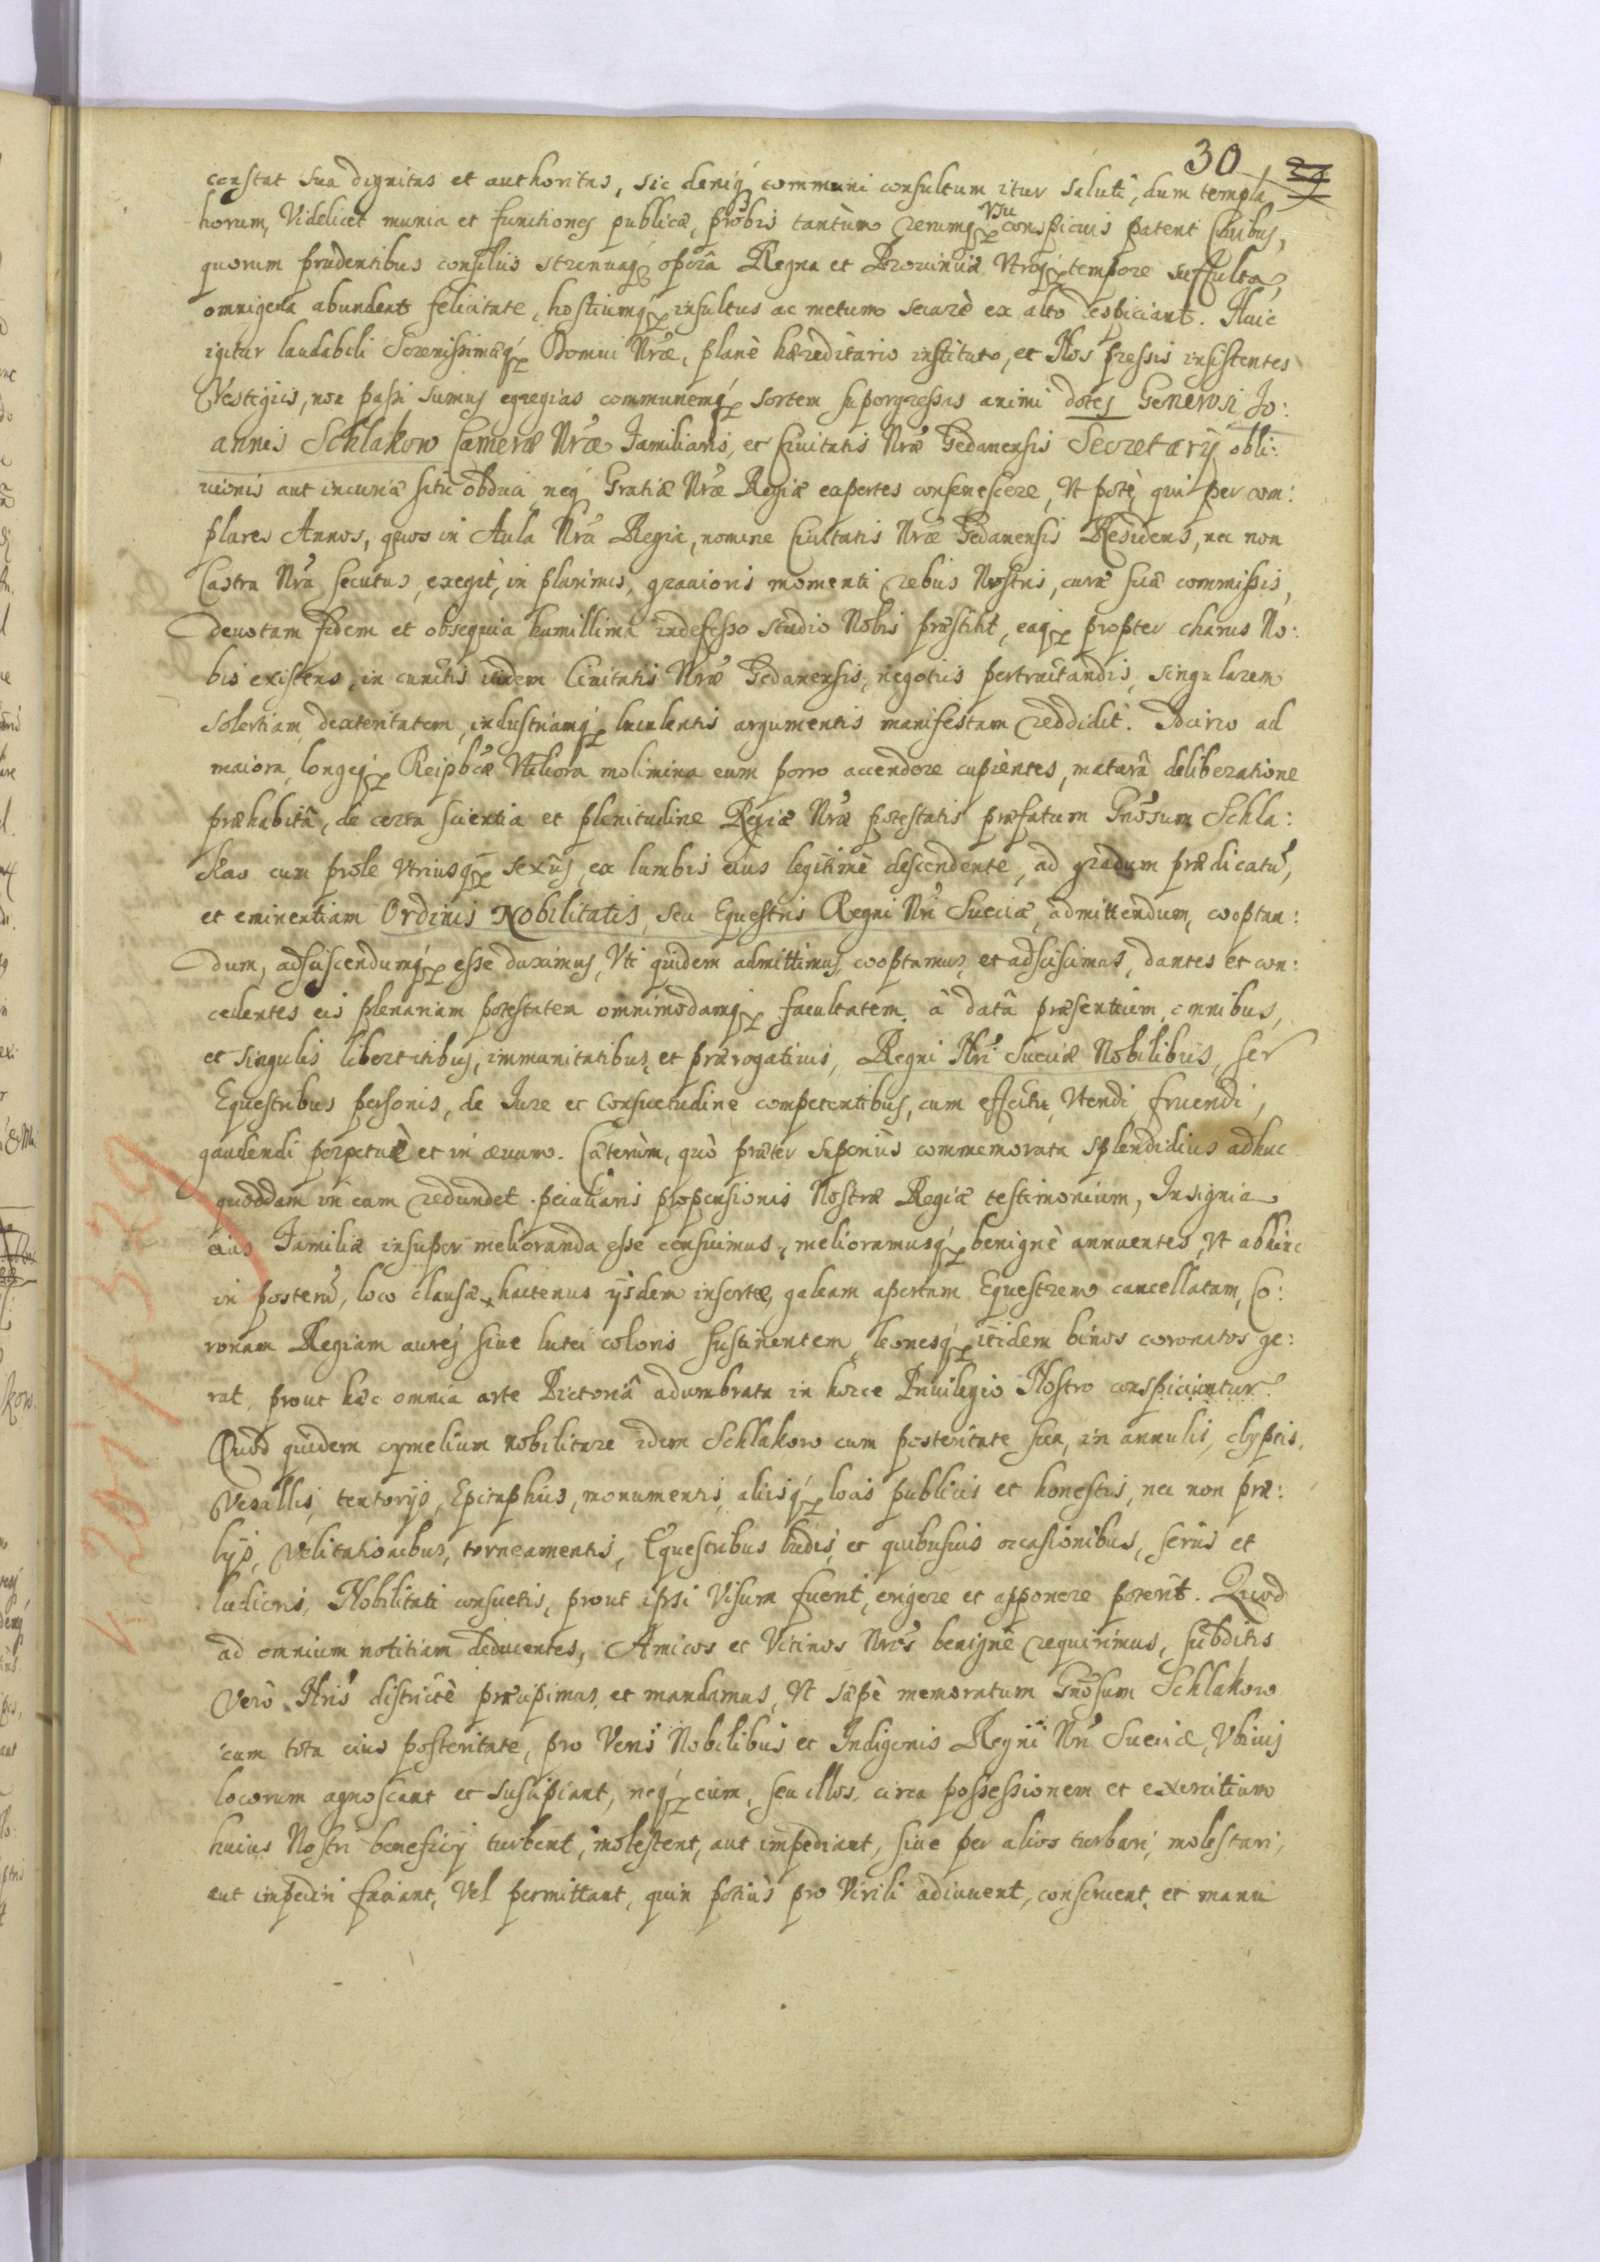 30 29
constat sua dignitas et authoritas, sic deniq́ communi consultum itur saluti, dum templa
horum, Videlicet munia et functiones publicæ, probis tantùm rerumq́ Vsu conspicuis patent Ciuibus,
quorum prudentibus consilijs strenuaq́ operâ Regna et Prouinciæ Vtroq́ tempore suffulta,
omnigena abundent felicitate, hostiumq́ insultus ac metum securè ex alto despiciant. Huic
igitur laudabili Serenissimæq́ Domui Nræ, planè hæreditario instituto, et Nos pressis insistentes
Vestigiis, non passi sumus egregias communemq́ sortem supergressas animi dotes Generosi Jo:
annis Schlakow Cameræ Nræ Familiaris, et Ciuitatis Nræ Gedanensis Secretarÿ obli:
uionis aut incuriæ situ obduci, neq́ Gratiæ Nræ Regiæ expertes consenescere, Vt potè, qui per com:
plures Annos, quos in Aula Nra Regia, nomine Ciuitatis Nræ Gedanensis Residens, nec non
Castra Nra secutus, exegit, in plurimis, grauioris momenti rebus Nostris, curæ suæ commissis,
deuotam fidem et obsequia humillima indefesso studio Nobis præstitit, eaq́ propter charus No:
bis existens, in cunctis itidem Ciuitatis Nræ Gedanensis, negotiis pertractandis, singularem
solertiam, dexteritatem, industriamq́ luculentis argumentis manifestam reddidit. Idcirco ad
maiora, longeq́ Reipbcæ Vtiliora molimina eum porro accendere cupientes, maturâ deliberatione
præhabitâ, de certa scientia et plenitudine Regiæ Nræ potestatis præfatum Gnosum Schla:
kow cum prole Vtriusq́ sexûs, ex lumbis eius legitimè descendente, ad gradum prædicatū,
et eminentiam Ordinis Nobilitatis, seu Equestris Regni Nri Sueciæ, admittendum, cooptan:
dum, adsciscendumq́ esse duximus, Vti quidem admittimus, cooptamus, et adsciscimus, dantes et con:
cedentes eis plenariam potestatem omnimodamq́ facultatem, à datâ præsentium, omnibus,
et singulis libertatibus, immunitatibus, et prærogatiuis, Regni Nri Sueciæ Nobilibus, seu
Equestribus personis, de Iure et Consuetudine competentibus, cum effectu, Vtendi, fruendi,
gaudendi perpetuè et in æuum. Cæterùm, quò præter superiùs commemorata splendidius adhuc
quoddam in eum redundet peculiaris propensionis Nostræ Regiæ testimonium, Insignia
eius Familiæ insuper melioranda esse censuimus, melioramusq́ benignè annuentes, Vt abhinc
in posterū, loco clausæ hactenus ijsdem insertæ, galeam apertam Equestrem cancellatam, Co:
ronam Regiam aurej siue lutei coloris sustinentem, leonesq́ itidem binos coronatos ge:
rat, prout hæc omnia arte Pictoriâ adumbrata in hocce Priuilegio Nostro conspiciuntur.
Quod quidem cymelium nobilitare idem Schlakow cum posteritate sua, in annulis, clypeis,
Vexillis, tentorijs, Epitaphiis, monumentis, aliisq́ locis publicis et honestis, nec non præ:
lijs, Velitationibus, torneamentis, Equestribus ludis, et quibusuis occasionibus, seriis et
ludicris, Nobilitati consuetis, prout ipsi Visum fuerit, erigere et apponere poterit. Quod
ad omnium notitiam deducentes, Amicos et Vicinos Nros benignè requirimus, subditis
Verò Nris districtè præcipimus, et mandamus, Vt sæpè memoratum Gnosum Schlakow
cum tota eius posteritate, pro Veris Nobilibus et Indigenis Regni Nri Sueciæ, Vbiuis
locorum agnoscant et suscipiant, neq́ eum, seu illos, circa possessionem et exercitium
huius Nostri beneficij turbent, molestent, aut impediant, siue per alios turbari, molestari,
aut impediri faciant, Vel permittant, quin potiùs pro Virili adiuuent, conseruent, et manu